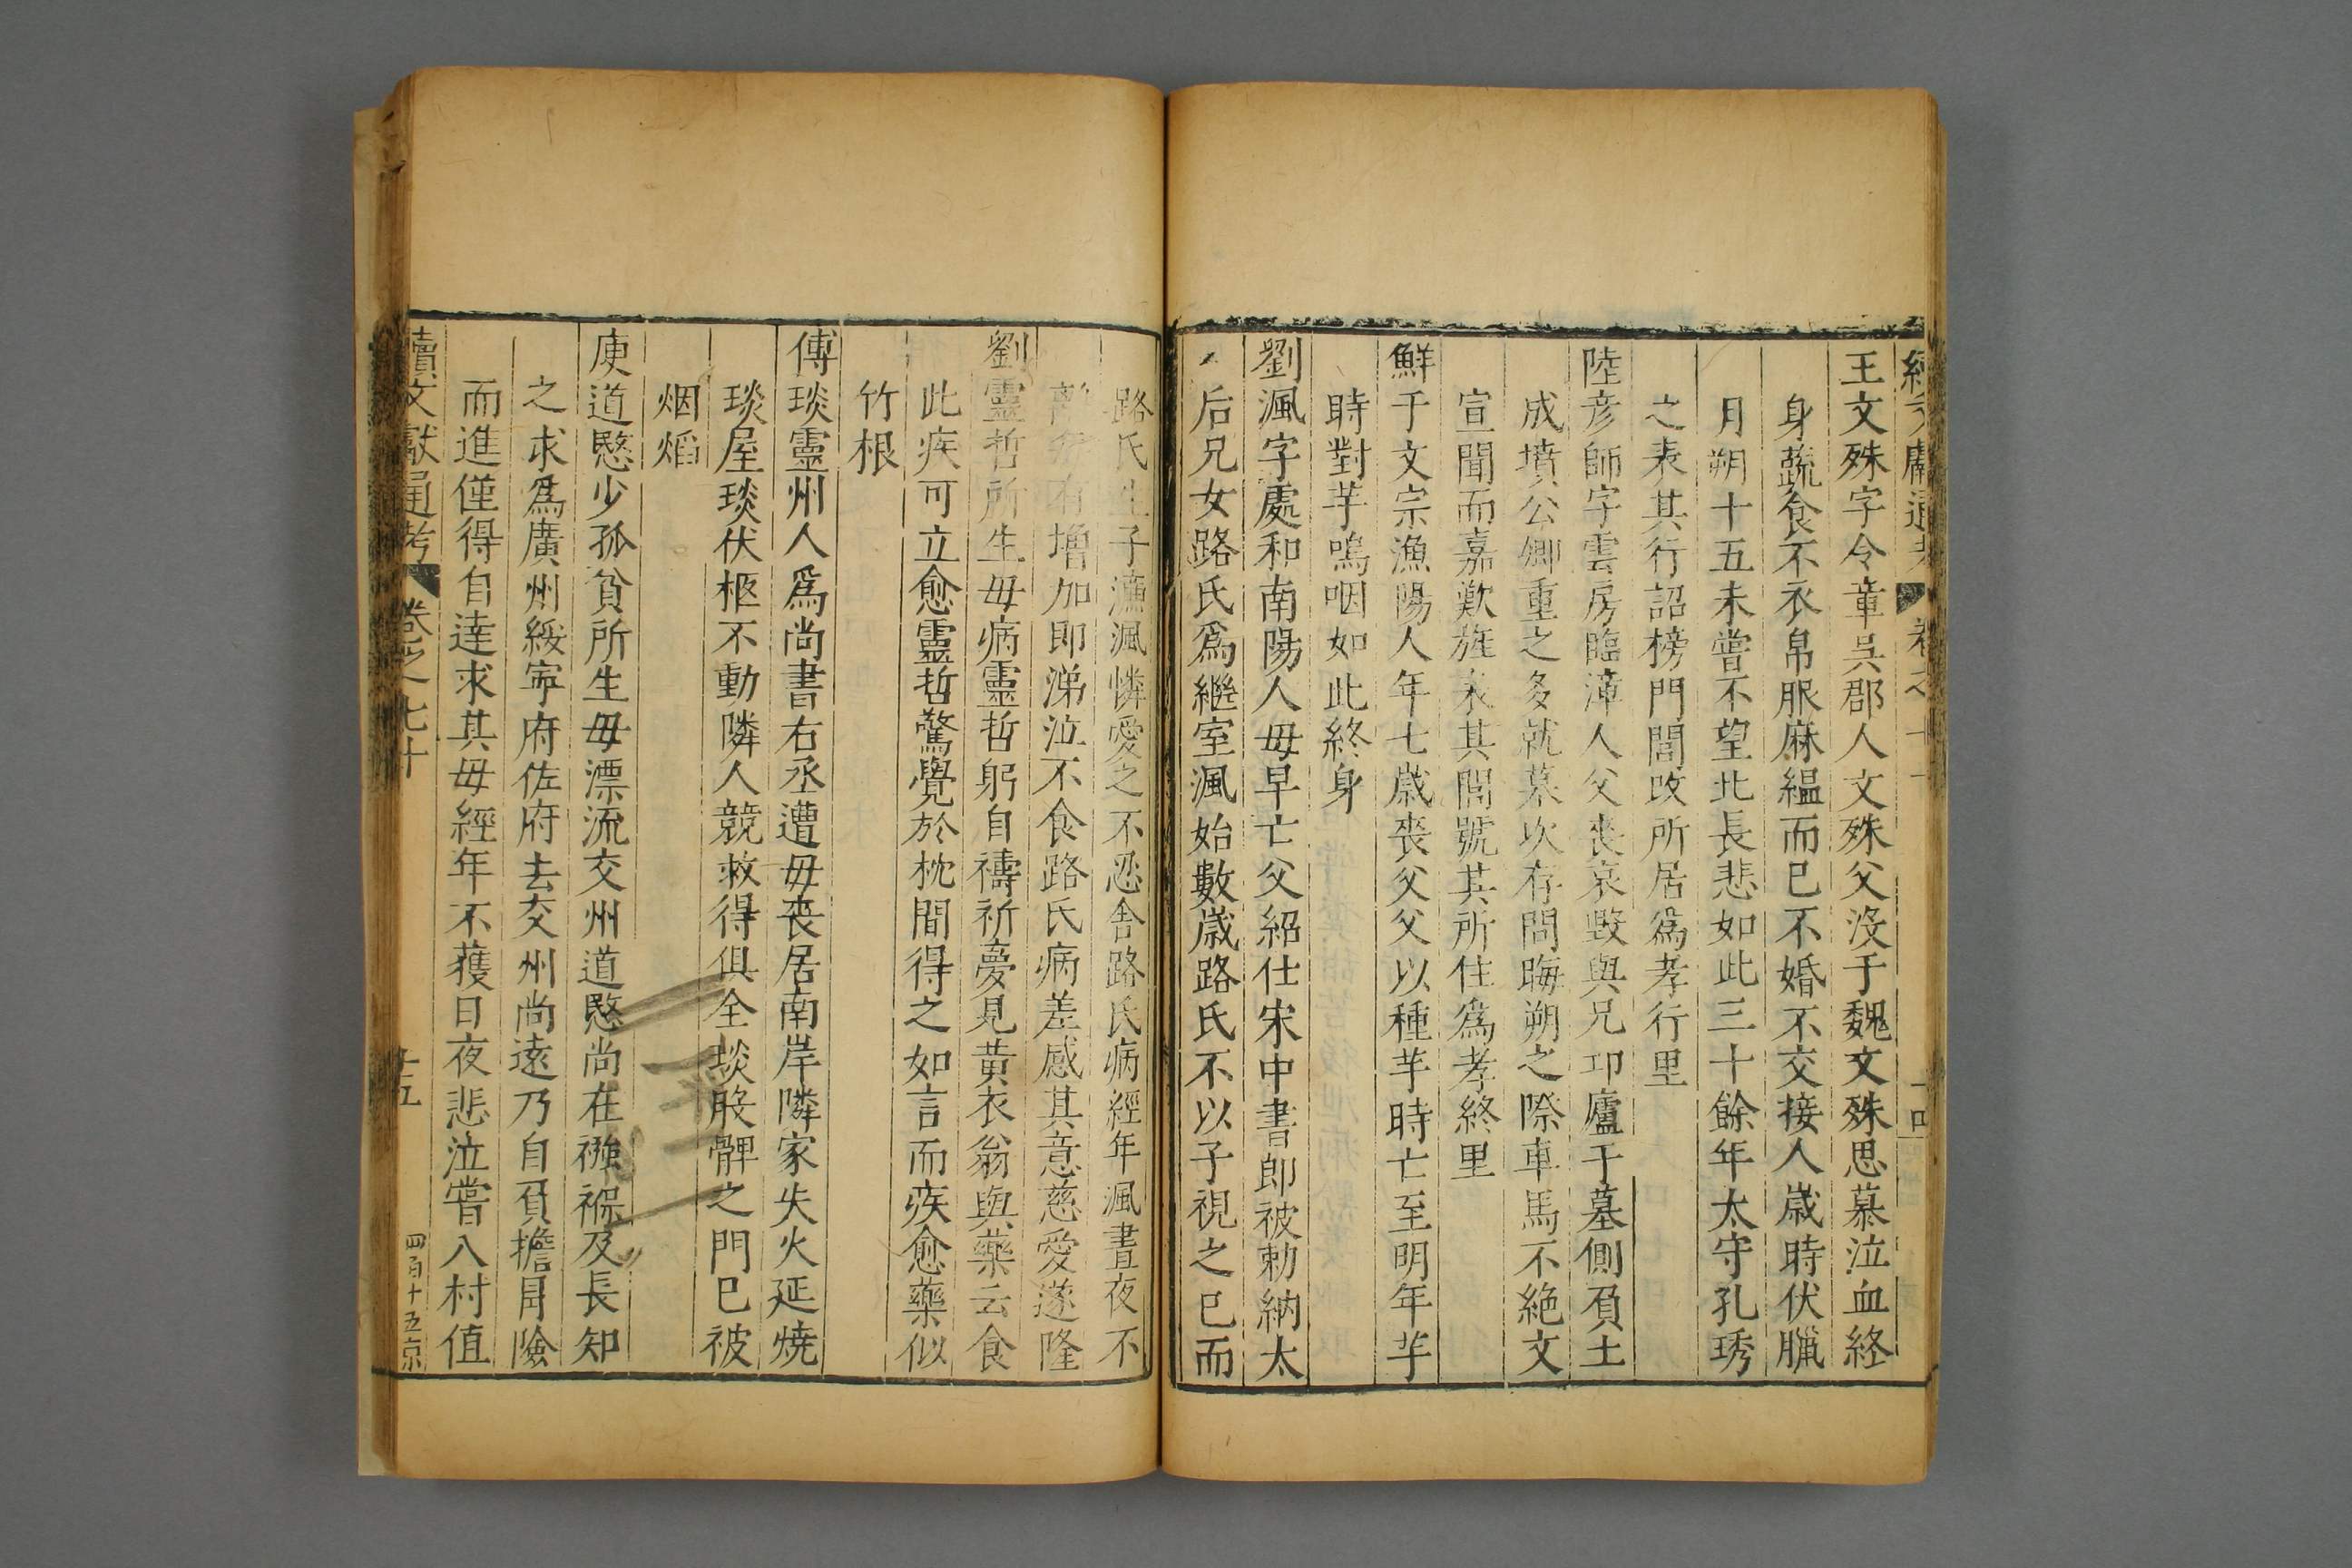 王文殊字令章吳郡人文殊父沒于魏文殊思慕泣血終
身蔬食不衣帛服麻緼而已不婚不交接人歲時伏臘
月朔十五未嘗不望北長悲如此三十餘年太守孔琇
之表其行詔榜門閭改所居爲孝行里
陸彥師字雲房臨漳人父喪哀毀與兄卭廬于墓側負土
成墳公卿重之多就墓次存問晦朔之際車馬不絶文
宣聞而嘉歎旌表其閭號其所住爲孝終里
鮮于文宗漁陽人年七歲喪父父以種芋時亡至明年芋
時對芋嗚咽如此終身
劉渢字處和南陽人母早亡父紹仕宋中書郎被勅納太
后兄女路氏爲繼室渢始數歲路氏不以子視之已而
路氏生子濂渢憐愛之不忍舍路氏病經年渢晝夜不
離 有增加即涕泣不食路氏病差感其意慈愛遂隆
劉靈哲所生母病靈哲躬自禱祈夢見黃衣翁與藥云食
此疾可立愈靈哲驚覺於枕間得之如言而疾愈藥似
竹根
傅琰靈州人爲尚書右丞遭母喪居南岸隣家失火延燒
琰屋琰伏柩不動隣人競救得俱全琰股髀之門已被
烟熖
庾道愍少孤貧所生母漂流交州道愍尚在襁褓及長知
之求爲廣州綏寧府佐府去交州尚遠乃自負擔冐險
而進僅得自達求其母經年不獲日夜悲泣嘗入村值
續文獻通考 卷之七十 十五 四百十五 京